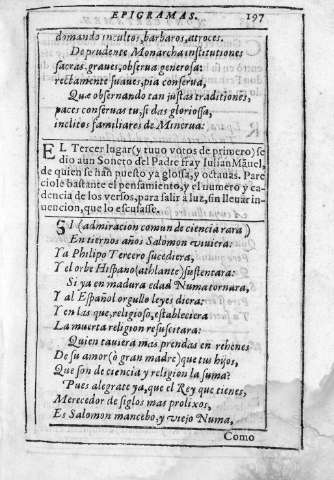 EPIGRAMAS. 197
domando incultos, barbaros, atroces.
De prudente Monarcha instituciones
sacras, graues, obserua generosa:
rectamente suaues, pia conserua,
Que obsernando tan justas traditiones,
pace conseruas tu, si das gloriosa,
inclitos familiares de Minerua.
EL Tercer lugar (y tuuo votos de primero) se
dio aun Soneto del Padre fray Iulian Mãuel,
de quien se han puesto ya glossa, y octauas. Pare
ciole bastante el pensamiento, y el numero y ca-
dencia de los versos, para salir à luz, sin lleuar in-
uencion, que lo escusasse.
SI (admiracion comun de ciencia rara)
En tiernos años Salomon viuiera:
Ya Philipo Tercero sucediera,
Y el orbe Hispano (athlante) sustentara:
Si ya en madura edad Numa tornara,
Y al Español orgullo leyes diera:
Y en las que, religioso, estableciera
La muerta religion resuscitara:
Quien tauiera mas prendas en rehenes
De su amor (ò gran madre) que tus hijos,
Que son de ciencia y religion la suma?
Pues alegrate ya, que el Rey que tienes,
Merecedor de siglos mas prolixos,
Es Salomon mancebo, y viejo Numa,
Como